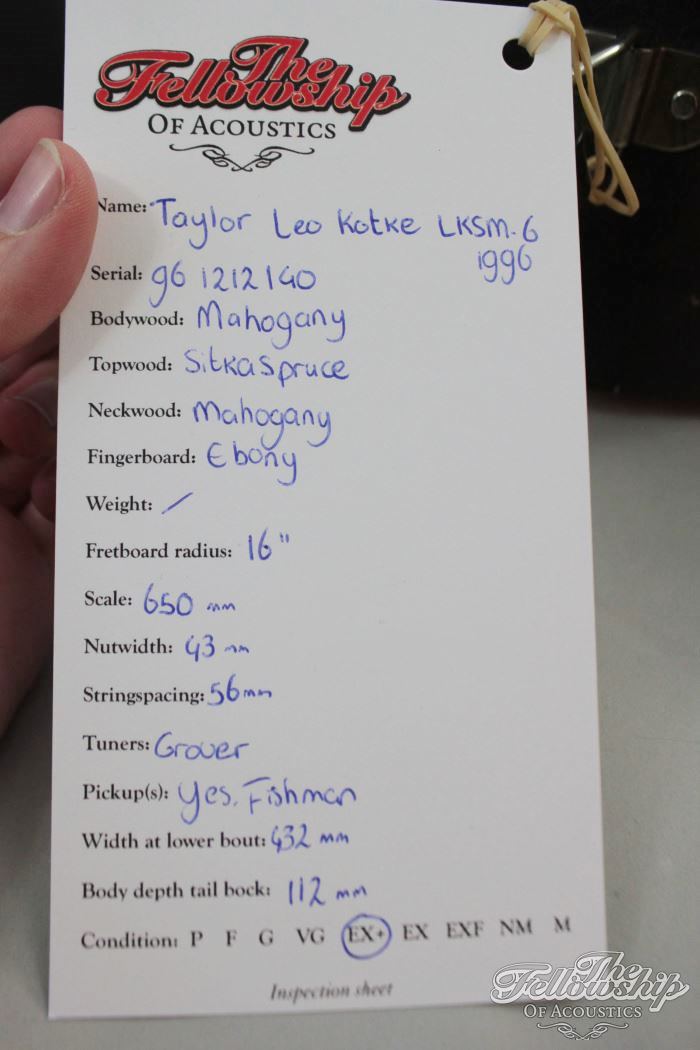 The
Fellowship
OF ACOUSTICS
Name: Taylor Leo Kotke LKSM-6
1996
Serial: 961212140
Bodywood: Mahogany
Topwood: Sitka Spruce
Neckwood: Mahogany
Fingerboard: Ebony
Weight: /
Fretboard radius: 16"
Scale: 650 mm
Nutwidth: 43 mm
Stringspacing: 56mm
Tuners: Grover
Pickup(s): Yes. Fishman
Width at lower bout: 432 mm
Body depth tail bock: 112 mm
Condition: P F G VG EX+ EX EXF NM M
Inspection sheet
The
Fellowship
OF ACOUSTICS